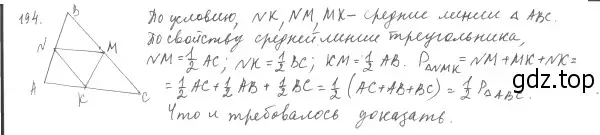 194.
B
N
M
A
K
C
По условию, NK, NM, MK – средние линии △ ABC.
По свойству средней линии треугольника,
NM = 1/2 AC; NK = 1/2 BC; KM = 1/2 AB. P△NMK = NM + MK + NK =
= 1/2 AC + 1/2 AB + 1/2 BC = 1/2 (AC + AB + BC) = 1/2 P△ABC.
Что и требовалось доказать.
gdz.top